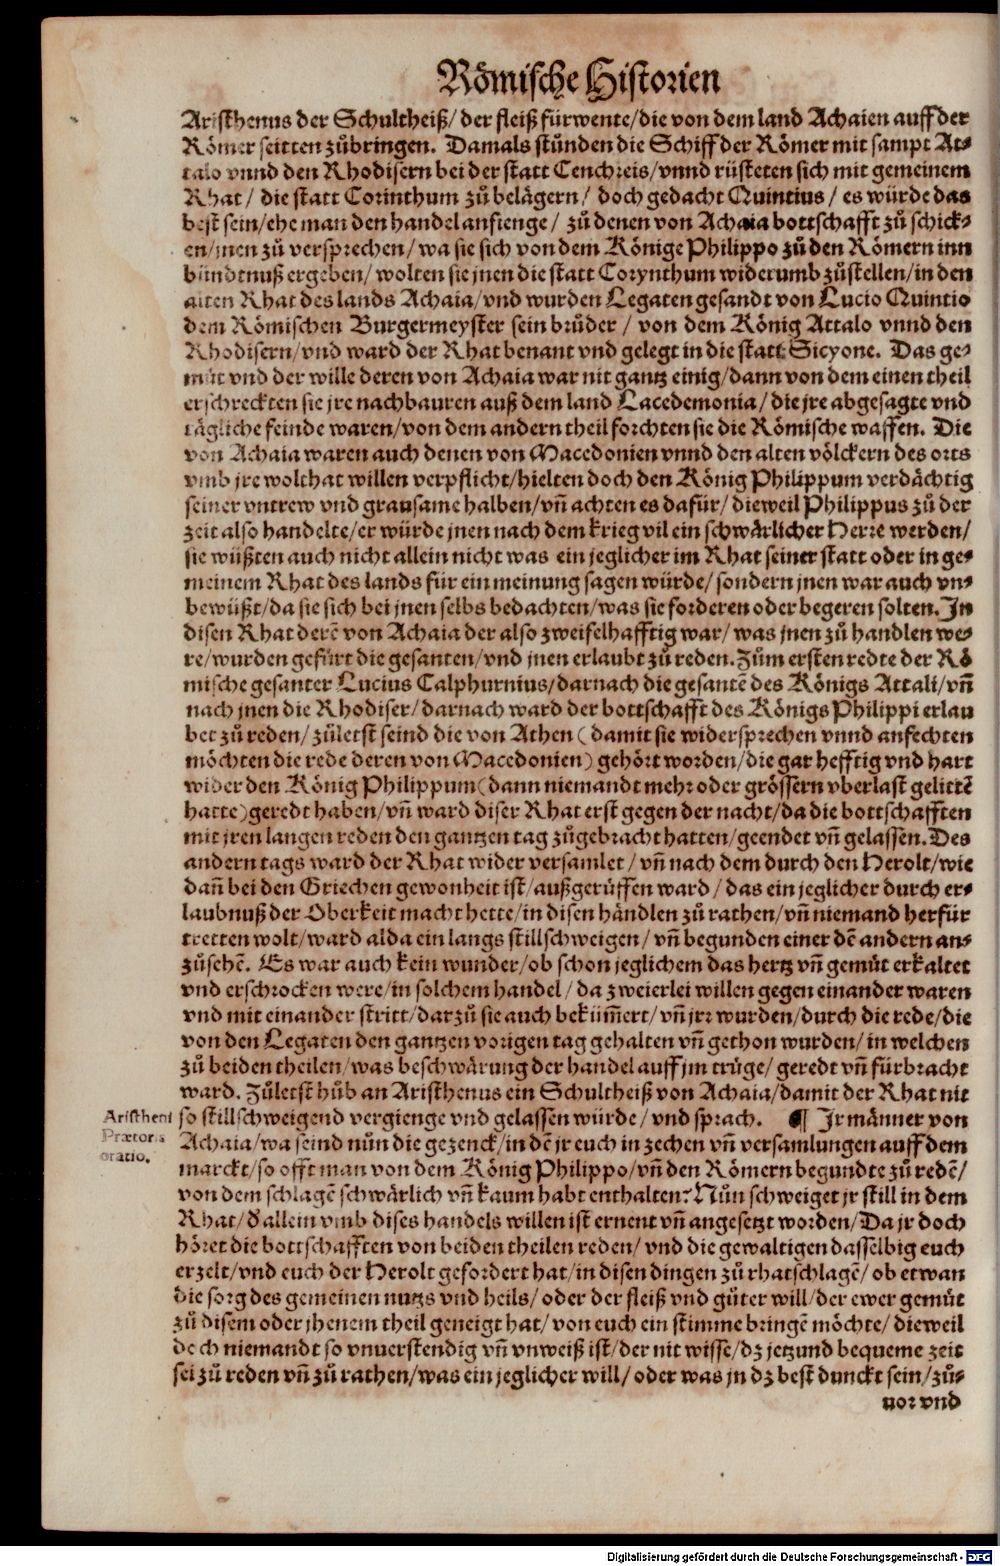 Römische Historien
Aristhenus der Schultheiß/ der fleiß fürwente/die von dem land Achaien auff der
Römer seitten zůbringen. Damals stůnden die Schiff der Römer mit sampt At-
talo vnnd den Rhodisern bei der statt Cenchreis/vnnd rüsteten sich mit gemeinem
Rhat/ die statt Corinthum zů belägern/ doch gedacht Quintius/ es würde das
best sein/ehe man den handel anfienge/ zů denen von Achaia bottschafft zů schick-
en/jnen zů versprechen/wa sie sich von dem Könige Philippo zů den Römern inn
bündtnuß ergeben/ wolten sie jnen die statt Corynthum widerumb zůstellen/in den
alten Rhat des lands Achaia/vnd wurden Legaten gesandt von Lucio Quintio
dem Römischen Burgermeyster sein brůder/ von dem König Attalo vnnd den
Rhodisern/vnd ward der Rhat benant vnd gelegt in die statt Sicyone. Das ge-
müt vnd der wille deren von Achaia war nit gantz einig/dann von dem einen theil
erschreckten sie jre nachbauren auß dem land Lacedemonia/die jre abgesagte vnd
tägliche feinde waren/von dem andern theil forchten sie die Römische waffen. Die
von Achaia waren auch denen von Macedonien vnnd den alten völckern des orts
vmb jre wolthat willen verpflicht/hielten doch den König Philippum verdächtig
seiner vntrew vnd grausame halben/vñ achten es dafür/dieweil Philippus zů der
zeit also handelte/er würde jnen nach dem krieg vil ein schwärlicher Herre werden/
sie wüßten auch nicht allein nicht was ein jeglicher im Rhat seiner statt oder in ge-
meinem Rhat des lands für ein meinung sagen würde/sondern jnen war auch vn-
bewüßt/da sie sich bei jnen selbs bedachten/was sie forderen oder begeren solten. In
disen Rhat derẽ von Achaia der also zweifelhafftig war/was jnen zů handlen we-
re/wurden gefürt die gesanten/vnd jnen erlaubt zů reden. Zům ersten redte der Rö
mische gesanter Lucius Calphurnius/darnach die gesantẽ des Königs Attali/vñ
nach jnen die Rhodiser/darnach ward der bottschafft des Königs Philippi erlau
bet zů reden/zůletst seind die von Athen (damit sie widersprechen vnnd anfechten
möchten die rede deren von Macedonien) gehört worden/die gar hefftig vnd hart
wider den König Philippum (dann niemandt mehr oder grössern vberlast gelittẽ
hatte) geredt haben/vñ ward diser Rhat erst gegen der nacht/da die bottschafften
mit jren langen reden den gantzen tag zůgebracht hatten/geendet vñ gelassen. Des
andern tags ward der Rhat wider versamlet/vñ nach dem durch den Herolt/wie
dañ bei den Griechen gewonheit ist/außgerůffen ward/das ein jeglicher durch er-
laubnuß der Oberkeit macht hette/in disen händlen zů rathen/vñ niemand herfür
tretten wolt/ward alda ein langs stillschweigen/vñ begunden einer dẽ andern an-
zůsehẽ. Es war auch kein wunder/ob schon jeglichem das hertz vñ gemüt erkaltet
vnd erschrocken were/in solchem handel/da zweierlei willen gegen einander waren
vnd mit einander stritt/darzů sie auch beküm̃ert/vñ jrr wurden/durch die rede/die
von den Legaten den gantzen vorigen tag gehalten vñ gethon wurden/in welchen
zů beiden theilen/was beschwärung der handel auff jm trüge/geredt vñ fürbracht
ward. Zůletst hůb an Aristhenus ein Schultheiß von Achaia/damit der Rhat nit
so stillschweigend vergienge vnd gelassen würde/vnd sprach. ¶ Ir männer von
Aristheni
Prætoris
oratio.
Achaia/wa seind nůn die gezenck/in dẽ jr euch in zechen vñ versamlungen auff dem
marckt/so offt man von dem König Philippo/vñ den Römern begundte zů redẽ/
von dem schlagẽ schwärlich vñ kaum habt enthalten? Nůn schweiget jr still in dem
Rhat/d allein vmb dises handels willen ist ernent vñ angesetzt worden/Da jr doch
höret die bottschafften von beiden theilen reden/vnd die gewaltigen dasselbig euch
erzelt/vnd euch der Herolt gefordert hat/in disen dingen zů rhatschlagẽ/ob etwan
die sorg des gemeinen nutzs vnd heils/oder der fleiß vnd güter will/der ewer gemüt
zů disem oder jhenem theil geneigt hat/von euch ein stimme bringẽ möchte/dieweil
doch niemandt so vnuerstendig vñ vnweiß ist/der nit wisse/dz jetzund bequeme zeit
sei zů reden vñ zů rathen/was ein jeglicher will/oder was jn dz best dunckt sein/zů-
uor vnd
Digitalisierung gefördert durch die Deutsche Forschungsgemeinschaft - DFG